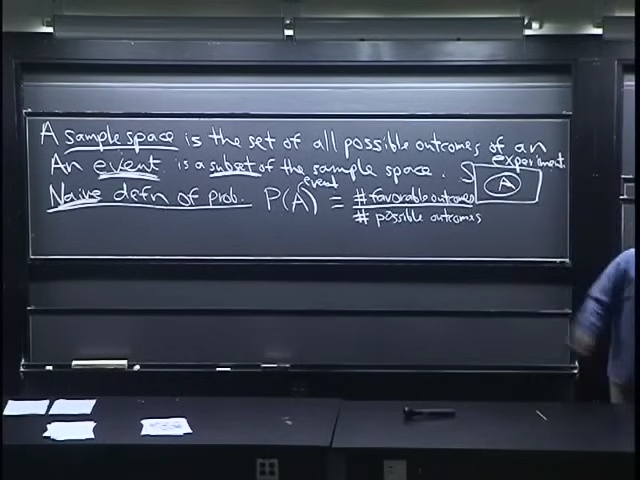 A sample space is the set of all possible outcomes of an experiment.
An event is a subset of the sample space. S A
Naive defn of prob. P(A) = # favorable outcomes
event
# possible outcomes